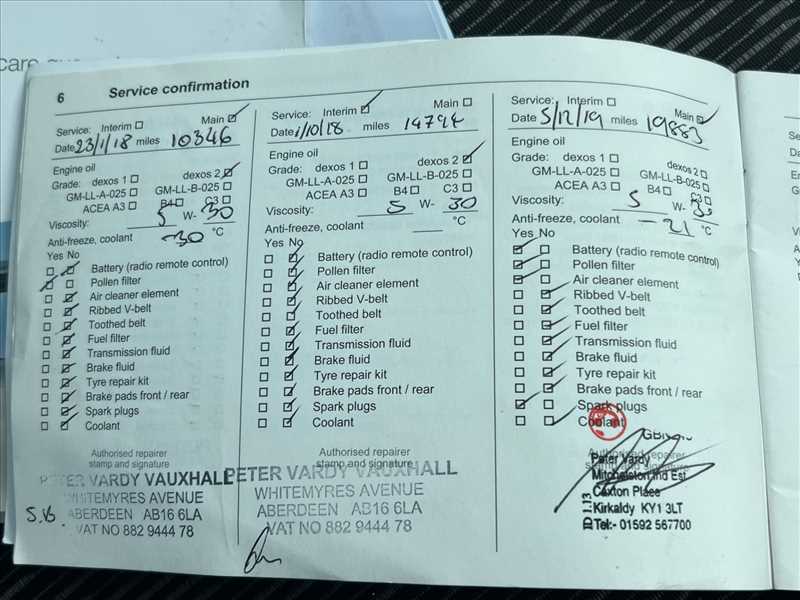 care
6 Service confirmation
Service: Interim Main
Date 23/1/18 miles 10346
Engine oil
Grade: dexos 1 dexos 2
GM-LL-A-025 GM-LL-B-025
ACEA A3 B4 C3
Viscosity: 5 W- 30
Anti-freeze, coolant -30 °C
Yes No
Battery (radio remote control)
Pollen filter
Air cleaner element
Ribbed V-belt
Toothed belt
Fuel filter
Transmission fluid
Brake fluid
Tyre repair kit
Brake pads front / rear
Spark plugs
Coolant
Authorised repairer
stamp and signature
PETER VARDY VAUXHALL
WHITEMYRES AVENUE
ABERDEEN AB16 6LA
VAT NO 882 9444 78
Service: Interim Main
Date 1/10/18 miles 14794
Engine oil
Grade: dexos 1 dexos 2
GM-LL-A-025 GM-LL-B-025
ACEA A3 B4 C3
Viscosity: 5 W- 30
Anti-freeze, coolant °C
Yes No
Battery (radio remote control)
Pollen filter
Air cleaner element
Ribbed V-belt
Toothed belt
Fuel filter
Transmission fluid
Brake fluid
Tyre repair kit
Brake pads front / rear
Spark plugs
Coolant
Authorised repairer
stamp and signature
PETER VARDY VAUXHALL
WHITEMYRES AVENUE
ABERDEEN AB16 6LA
VAT NO 882 9444 78
Service: Interim Main
Date 5/12/19 miles 19883
Engine oil
Grade: dexos 1 dexos 2
GM-LL-A-025 GM-LL-B-025
ACEA A3 B4 C3
Viscosity: 5 W- 30
Anti-freeze, coolant -21 °C
Yes No
Battery (radio remote control)
Pollen filter
Air cleaner element
Ribbed V-belt
Toothed belt
Fuel filter
Transmission fluid
Brake fluid
Tyre repair kit
Brake pads front / rear
Spark plugs
Coolant
Authorised repairer
stamp and signature
Peter Vardy
Mitchelston Ind Est
Caxton Place
Kirkaldy KY1 3LT
Tel:- 01592 567700